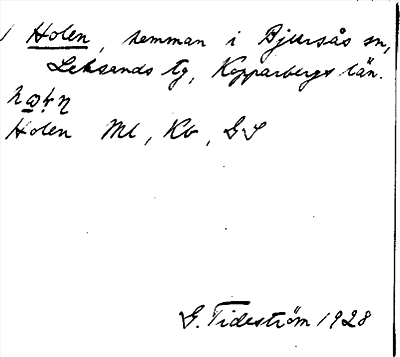 Holen, hemman i Bjursås sn,
Leksands tg, Kopparbergs län.
Holen Ml, Kb, GS
G. Tideström 1928